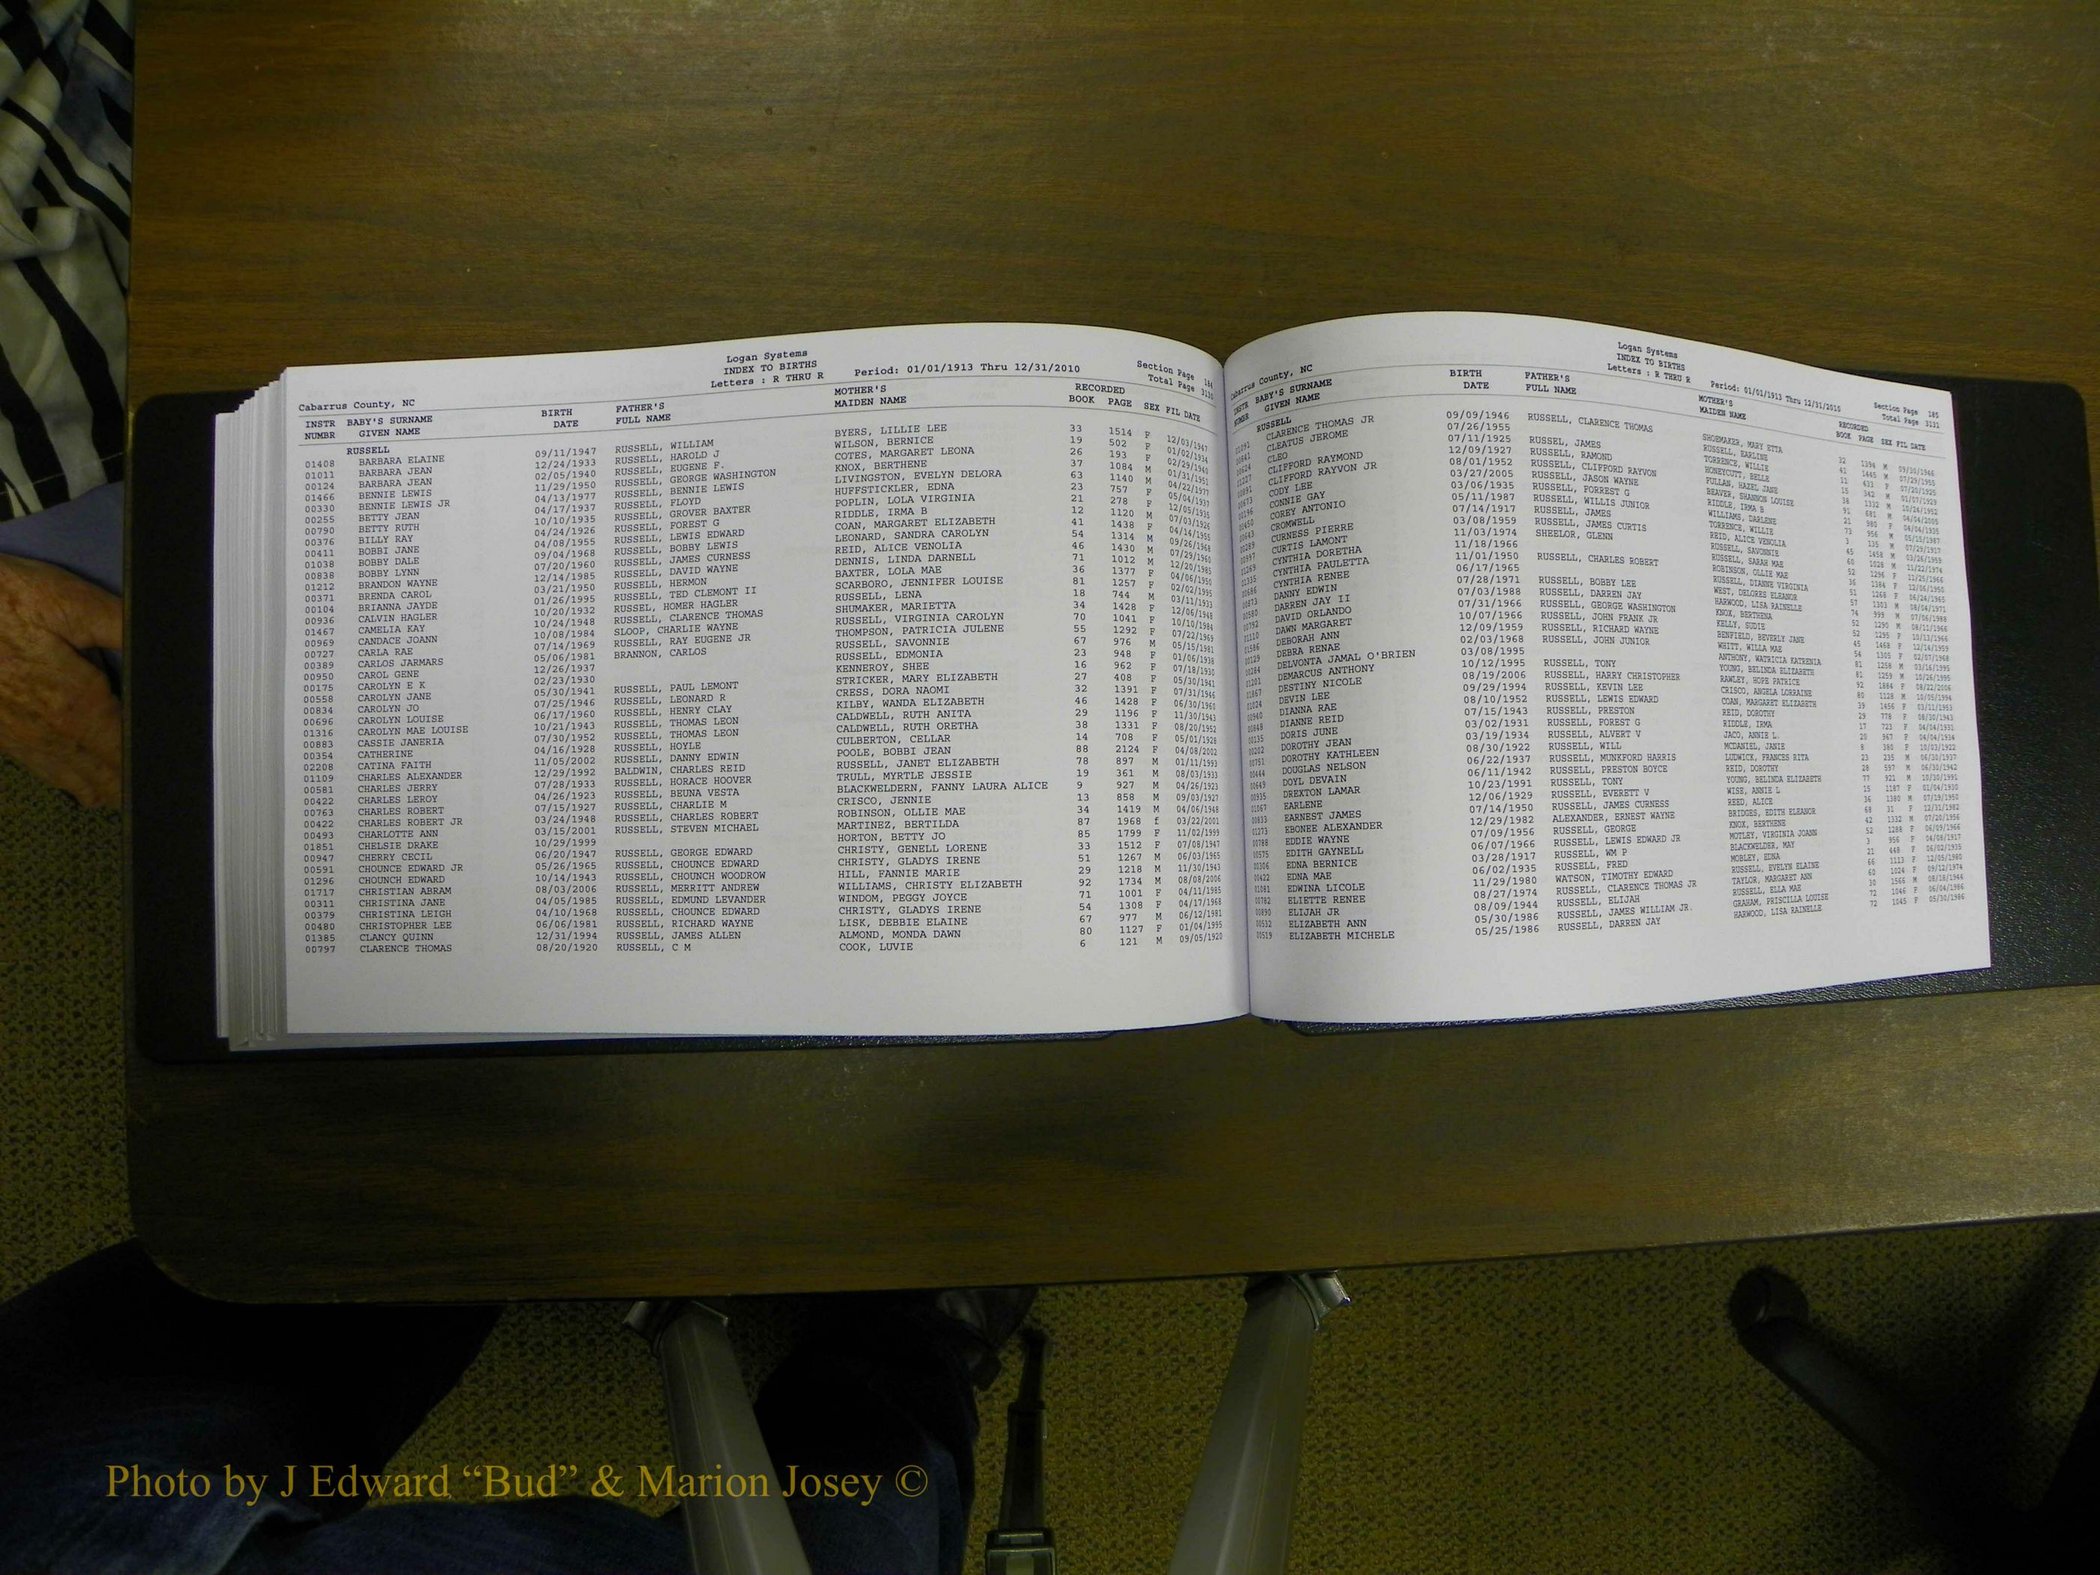 Logan Systems
INDEX TO BIRTHS
Cabarrus County, NC Letters : R THRU R Period: 01/01/1913 Thru 12/31/2010 Section Page 184
Total Page 3130
INSTR BABY'S SURNAME BIRTH FATHER'S MOTHER'S RECORDED
NUMBR GIVEN NAME DATE FULL NAME MAIDEN NAME BOOK PAGE SEX FIL DATE
RUSSELL
01408 BARBARA ELAINE 09/11/1947 RUSSELL, WILLIAM BYERS, LILLIE LEE 33 1514 F 12/03/1947
01011 BARBARA JEAN 12/24/1933 RUSSELL, HAROLD J WILSON, BERNICE 19 502 F 01/02/1934
00124 BARBARA JEAN 02/05/1940 RUSSELL, EUGENE F. COTES, MARGARET LEONA 26 193 F 02/29/1940
01466 BENNIE LEWIS 11/29/1950 RUSSELL, GEORGE WASHINGTON KNOX, BERTHENE 37 1084 M 01/31/1951
00330 BENNIE LEWIS JR 04/13/1977 RUSSELL, BENNIE LEWIS LIVINGSTON, EVELYN DELORA 63 1140 M 04/22/1977
00255 BETTY JEAN 04/17/1937 RUSSELL, FLOYD HUFFSTICKLER, EDNA 23 757 F 05/04/1937
00790 BETTY RUTH 10/10/1935 RUSSELL, GROVER BAXTER POPLIN, LOLA VIRGINIA 21 278 F 12/05/1935
00376 BILLY RAY 04/24/1926 RUSSELL, FOREST G RIDDLE, IRMA B 12 1120 M 07/03/1926
00411 BOBBI JANE 04/08/1955 RUSSELL, LEWIS EDWARD COAN, MARGARET ELIZABETH 41 1438 F 04/14/1955
01038 BOBBY DALE 09/04/1968 RUSSELL, BOBBY LEWIS LEONARD, SANDRA CAROLYN 54 1314 M 09/26/1968
00838 BOBBY LYNN 07/20/1960 RUSSELL, JAMES CURNESS REID, ALICE VENOLIA 46 1430 M 07/29/1960
01212 BRANDON WAYNE 12/14/1985 RUSSELL, DAVID WAYNE DENNIS, LINDA DARNELL 71 1012 M 12/20/1985
00371 BRENDA CAROL 03/21/1950 RUSSELL, HERMON BAXTER, LOLA MAE 36 1377 F 04/06/1950
00104 BRIANNA JAYDE 01/26/1995 RUSSELL, TED CLEMONT II SCARBORO, JENNIFER LOUISE 81 1257 F 02/02/1995
00936 CALVIN HAGLER 10/20/1932 RUSSEL, HOMER HAGLER RUSSELL, LENA 18 744 M 03/11/1933
01467 CAMELIA KAY 10/24/1948 RUSSELL, CLARENCE THOMAS SHUMAKER, MARIETTA 34 1428 F 12/06/1948
00969 CANDACE JOANN 10/08/1984 SLOOP, CHARLIE WAYNE RUSSELL, VIRGINIA CAROLYN 70 1041 F 10/10/1984
00727 CARLA RAE 07/14/1969 RUSSELL, RAY EUGENE JR THOMPSON, PATRICIA JULENE 55 1292 F 07/22/1969
00389 CARLOS JARMARS 05/06/1981 BRANNON, CARLOS RUSSELL, SAVONNIE 67 976 M 05/15/1981
00950 CAROL GENE 12/26/1937 RUSSELL, EDMONIA 23 948 F 01/06/1938
00175 CAROLYN E K 02/23/1930 KENNEROY, SHEE 16 962 F 07/18/1930
00558 CAROLYN JANE 05/30/1941 RUSSELL, PAUL LEMONT STRICKER, MARY ELIZABETH 27 408 F 05/30/1941
00834 CAROLYN JO 07/25/1946 RUSSELL, LEONARD R CRESS, DORA NAOMI 32 1391 F 07/31/1946
00696 CAROLYN LOUISE 06/17/1960 RUSSELL, HENRY CLAY KILBY, WANDA ELIZABETH 46 1428 F 06/30/1960
01316 CAROLYN MAE LOUISE 10/21/1943 RUSSELL, THOMAS LEON CALDWELL, RUTH ANITA 29 1196 F 11/30/1943
00883 CASSIE JANERIA 07/30/1952 RUSSELL, THOMAS LEON CALDWELL, RUTH ORETHA 38 1331 F 08/20/1952
00354 CATHERINE 04/16/1928 RUSSELL, HOYLE CULBERTON, CELLAR 14 708 F 05/01/1928
02208 CATINA FAITH 11/05/2002 RUSSELL, DANNY EDWIN POOLE, BOBBI JEAN 88 2124 F 04/08/2002
01109 CHARLES ALEXANDER 12/29/1992 BALDWIN, CHARLES REID RUSSELL, JANET ELIZABETH 78 897 M 01/11/1993
00581 CHARLES JERRY 07/28/1933 RUSSELL, HORACE HOOVER TRULL, MYRTLE JESSIE 19 361 M 08/03/1933
00422 CHARLES LEROY 04/26/1923 RUSSELL, BEUNA VESTA BLACKWELDERN, FANNY LAURA ALICE 9 927 M 04/26/1923
00763 CHARLES ROBERT 07/15/1927 RUSSELL, CHARLIE M CRISCO, JENNIE 13 858 M 09/03/1927
00422 CHARLES ROBERT JR 03/24/1948 RUSSELL, CHARLES ROBERT ROBINSON, OLLIE MAE 34 1419 M 04/06/1948
00493 CHARLOTTE ANN 03/15/2001 RUSSELL, STEVEN MICHAEL MARTINEZ, BERTILDA 87 1968 f 03/22/2001
01851 CHELSIE DRAKE 10/29/1999 HORTON, BETTY JO 85 1799 F 11/02/1999
00947 CHERRY CECIL 06/20/1947 RUSSELL, GEORGE EDWARD CHRISTY, GENELL LORENE 33 1512 F 07/08/1947
00591 CHOUNCE EDWARD JR 05/26/1965 RUSSELL, CHOUNCE EDWARD CHRISTY, GLADYS IRENE 51 1267 M 06/03/1965
01296 CHOUNCH EDWARD 10/14/1943 RUSSELL, CHOUNCH WOODROW HILL, FANNIE MARIE 29 1218 M 11/30/1943
01717 CHRISTIAN ABRAM 08/03/2006 RUSSELL, MERRITT ANDREW WILLIAMS, CHRISTY ELIZABETH 92 1734 M 08/08/2006
00311 CHRISTINA JANE 04/05/1985 RUSSELL, EDMUND LEVANDER WINDOM, PEGGY JOYCE 71 1001 F 04/11/1985
00379 CHRISTINA LEIGH 04/10/1968 RUSSELL, CHOUNCE EDWARD CHRISTY, GLADYS IRENE 54 1308 F 04/17/1968
00480 CHRISTOPHER LEE 06/06/1981 RUSSELL, RICHARD WAYNE LISK, DEBBIE ELAINE 67 977 M 06/12/1981
01385 CLANCY QUINN 12/31/1994 RUSSELL, JAMES ALLEN ALMOND, MONDA DAWN 80 1127 F 01/04/1995
00797 CLARENCE THOMAS 08/20/1920 RUSSELL, C M COOK, LUVIE 6 121 M 09/05/1920
Logan Systems
INDEX TO BIRTHS
Cabarrus County, NC Letters : R THRU R Period: 01/01/1913 Thru 12/31/2010 Section Page 185
Total Page 3131
INSTR BABY'S SURNAME BIRTH FATHER'S MOTHER'S RECORDED
NUMBR GIVEN NAME DATE FULL NAME MAIDEN NAME BOOK PAGE SEX FIL DATE
RUSSELL
01091 CLARENCE THOMAS JR 09/09/1946 RUSSELL, CLARENCE THOMAS SHOEMAKER, MARY ETTA 32 1394 M 09/30/1946
00841 CLEATUS JEROME 07/26/1955 RUSSELL, EARLINE 41 1445 M 07/29/1955
00624 CLEO 07/11/1925 RUSSEL, JAMES TORRENCE, WILLIE 11 433 F 07/20/1925
01227 CLIFFORD RAYMOND 12/09/1927 RUSSELL, RAMOND HONEYCUTT, BELLE 15 342 M 01/07/1929
00891 CLIFFORD RAYVON JR 08/01/1952 RUSSELL, CLIFFORD RAYVON PULLAN, HAZEL JANE 38 1332 M 10/24/1952
00673 CODY LEE 03/27/2005 RUSSELL, JASON WAYNE BEAVER, SHANNON LOUISE 91 681 M 04/04/2005
00196 CONNIE GAY 03/06/1935 RUSSELL, FORREST G RIDDLE, IRMA B 21 980 F 04/04/1935
00450 COREY ANTONIO 05/11/1987 RUSSELL, WILLIS JUNIOR WILLIAMS, DARLENE 73 956 M 05/15/1987
00643 CROMWELL 07/14/1917 RUSSELL, JAMES TORRENCE, WILLIE 3 135 M 07/29/1917
00289 CURNESS PIERRE 03/08/1959 RUSSELL, JAMES CURTIS REID, ALICE VENOLIA 45 1458 M 03/26/1959
00997 CURTIS LAMONT 11/03/1974 SHEELOR, GLENN RUSSELL, SAVONNIE 60 1028 M 11/22/1974
01269 CYNTHIA DORETHA 11/18/1966 RUSSELL, SARAH MAE 52 1296 F 11/25/1966
01335 CYNTHIA PAULETTA 11/01/1950 RUSSELL, CHARLES ROBERT ROBINSON, OLLIE MAE 36 1384 F 12/05/1950
00686 CYNTHIA RENEE 06/17/1965 RUSSELL, DIANNE VIRGINIA 51 1268 F 06/24/1965
00873 DANNY EDWIN 07/28/1971 RUSSELL, BOBBY LEE WEST, DELORES ELEANOR 57 1303 M 08/04/1971
00580 DARREN JAY II 07/03/1988 RUSSELL, DARREN JAY HARWOOD, LISA RAINELLE 74 999 M 07/06/1988
00792 DAVID ORLANDO 07/31/1966 RUSSELL, GEORGE WASHINGTON KNOX, BERTHENA 52 1290 M 08/11/1966
01110 DAWN MARGARET 10/07/1966 RUSSELL, JOHN FRANK JR KELLY, SUDIE 52 1295 F 10/13/1966
01586 DEBORAH ANN 12/09/1959 RUSSELL, RICHARD WAYNE BENFIELD, BEVERLY JANE 45 1468 F 12/14/1959
00129 DEBRA RENAE 02/03/1968 RUSSELL, JOHN JUNIOR WHITT, WILLA MAE 54 1305 F 02/07/1968
00284 DELVONTA JAMAL O'BRIEN 03/08/1995 ANTHONY, WATRICIA KATRENIA 81 1258 M 03/16/1995
01201 DEMARCUS ANTHONY 10/12/1995 RUSSELL, TONY YOUNG, BELINDA ELIZABETH 81 1259 M 10/26/1995
01867 DESTINY NICOLE 08/19/2006 RUSSELL, HARRY CHRISTOPHER RAWLEY, HOPE PATRICE 92 1884 F 08/22/2006
01024 DEVIN LEE 09/29/1994 RUSSELL, KEVIN LEE CRISCO, ANGELA LORRAINE 80 1128 M 10/05/1994
00940 DIANNA RAE 08/10/1952 RUSSELL, LEWIS EDWARD COAN, MARGARET ELIZABETH 39 1456 F 03/11/1953
00848 DIANNE REID 07/15/1943 RUSSELL, PRESTON REID, DOROTHY 29 778 F 08/30/1943
00135 DORIS JUNE 03/02/1931 RUSSELL, FOREST G RIDDLE, IRMA 17 723 F 04/04/1931
00202 DOROTHY JEAN 03/19/1934 RUSSELL, ALVERT V JACO, ANNIE L. 20 367 F 04/04/1934
00751 DOROTHY KATHLEEN 08/30/1922 RUSSELL, WILL MCDANIEL, JANIE 8 380 F 10/03/1922
00444 DOUGLAS NELSON 06/22/1937 RUSSELL, MUNKFORD HARRIS LUDWICK, FRANCES RITA 23 235 M 06/30/1937
00649 DOYL DEVAIN 06/11/1942 RUSSELL, PRESTON BOYCE REID, DOROTHY 28 597 M 06/30/1942
00935 DREXTON LAMAR 10/23/1991 RUSSELL, TONY YOUNG, BELINDA ELIZABETH 77 921 M 10/30/1991
01067 EARLENE 12/06/1929 RUSSELL, EVERETT V WISE, ANNIE L 15 1187 F 01/04/1930
00833 EARNEST JAMES 07/14/1950 RUSSELL, JAMES CURNESS REED, ALICE 36 1380 M 07/19/1950
01273 EBONEE ALEXANDER 12/29/1982 ALEXANDER, ERNEST WAYNE BRIDGES, EDITH ELEANOR 68 31 F 12/31/1982
00788 EDDIE WAYNE 07/09/1956 RUSSELL, GEORGE KNOX, BERTHENE 42 1332 M 07/20/1956
00575 EDITH GAYNELL 06/07/1966 RUSSELL, LEWIS EDWARD JR MOTLEY, VIRGINIA JOANN 52 1288 F 06/09/1966
00306 EDNA BERNICE 03/28/1917 RUSSELL, WM P BLACKWELDER, MAY 3 956 F 04/08/1917
00422 EDNA MAE 06/02/1935 RUSSELL, FRED MOBLEY, EDNA 21 448 F 06/02/1935
01081 EDWINA LICOLE 11/29/1980 WATSON, TIMOTHY EDWARD RUSSELL, EVELYN ELAINE 66 1113 F 12/05/1980
00782 ELIETTE RENEE 08/27/1974 RUSSELL, CLARENCE THOMAS JR TAYLOR, MARGARET ANN 60 1024 F 09/12/1974
00890 ELIJAH JR 08/09/1944 RUSSELL, ELIJAH RUSSELL, ELLA MAE 30 1566 M 08/18/1944
00512 ELIZABETH ANN 05/30/1986 RUSSELL, JAMES WILLIAM JR. GRAHAM, PRISCILLA LOUISE 72 1046 F 06/04/1986
00519 ELIZABETH MICHELE 05/25/1986 RUSSELL, DARREN JAY HARWOOD, LISA RAINELLE 72 1045 F 05/30/1986
Photo by J Edward “Bud” & Marion Josey ©